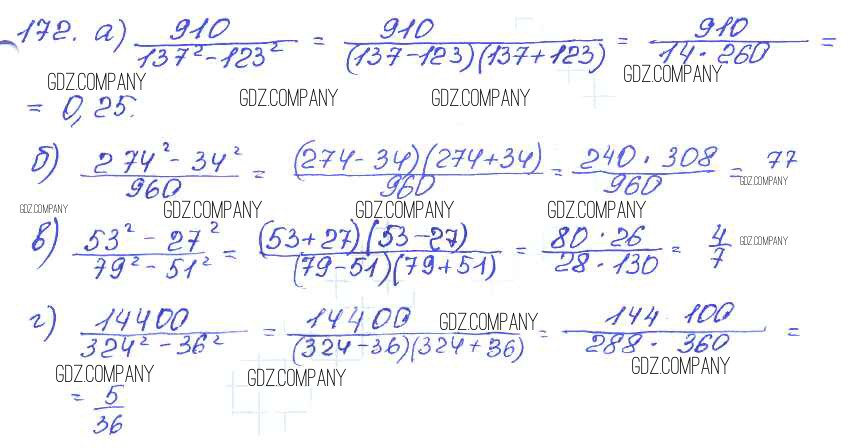 172. а) 910 / (137² - 123²) = 910 / ((137-123)(137+123)) = 910 / (14 · 260) =
GDZ.COMPANY GDZ.COMPANY GDZ.COMPANY GDZ.COMPANY
= 0,25.
б) (274² - 34²) / 960 = ((274-34)(274+34)) / 960 = (240 · 308) / 960 = 77
GDZ.COMPANY GDZ.COMPANY GDZ.COMPANY GDZ.COMPANY GDZ.COMPANY
в) (53² - 27²) / (79² - 51²) = ((53+27)(53-27)) / ((79-51)(79+51)) = (80 · 26) / (28 · 130) = 4/7
GDZ.COMPANY
г) 14400 / (324² - 36²) = 14400 / ((324-36)(324+36)) = (144 100) / (288 · 360) =
GDZ.COMPANY GDZ.COMPANY GDZ.COMPANY GDZ.COMPANY
= 5/36